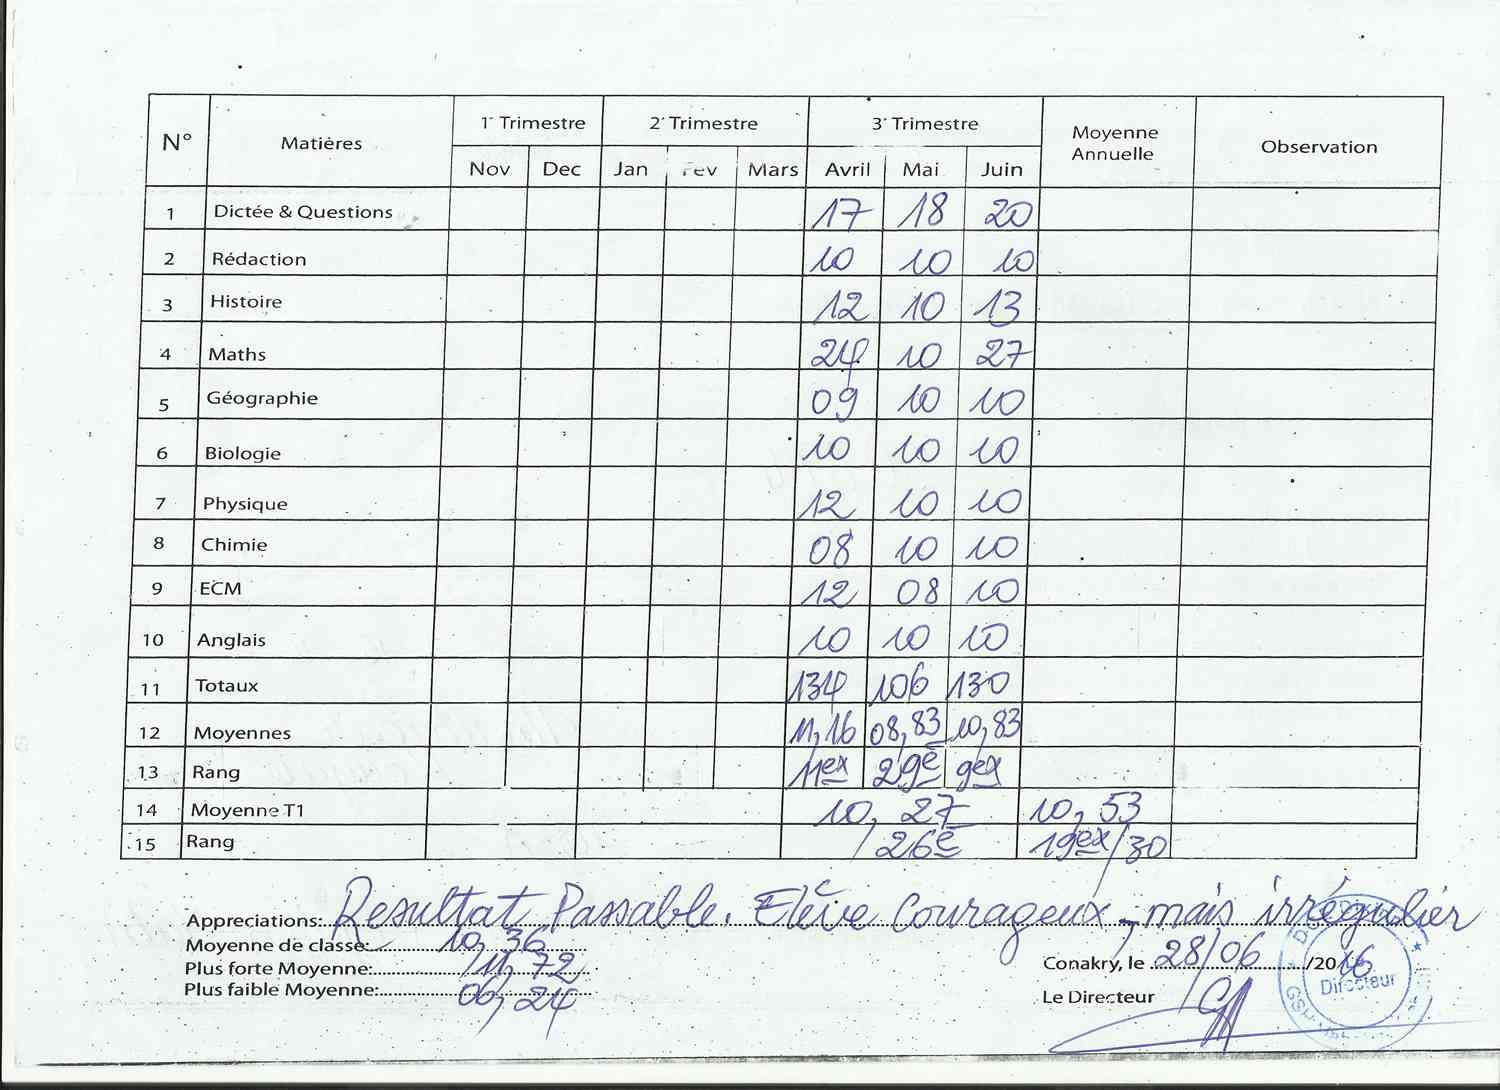 N° Matières 1er Trimestre 2e Trimestre 3e Trimestre Moyenne Annuelle Observation
Nov Dec Jan Fev Mars Avril Mai Juin
1 Dictée & Questions 17 18 20
2 Rédaction 10 10 10
3 Histoire 12 10 13
4 Maths 24 10 27
5 Géographie 09 10 10
6 Biologie 10 10 10
7 Physique 12 10 10
8 Chimie 08 10 10
9 ECM 12 08 10
10 Anglais 10 10 10
11 Totaux 134 106 130
12 Moyennes 11,16 08,83 10,83
13 Rang 11ex 29e 9ex
14 Moyenne T1 10,27 10,53
15 Rang 26e 19ex/30
Appreciations: Resultat Passable. Elève Courageux, mais irrégulier
Moyenne de classe: 10,36
Plus forte Moyenne: 11,72
Plus faible Moyenne: 06,24
Conakry, le 28/06/2016
Le Directeur
Directeur